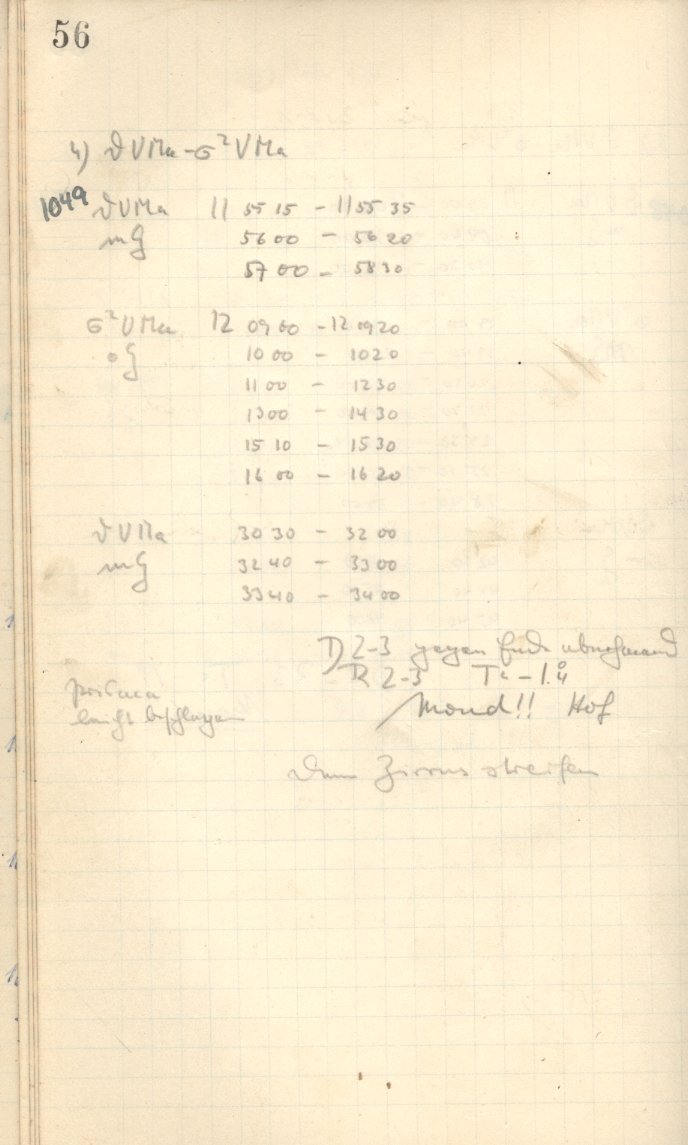 56
4) ϑ UMa - σ² UMa
1049 ϑ UMa 11 55 15 - 11 55 35
mG 56 00 - 56 20
57 00 - 58 30
σ² UMa 12 09 00 - 12 09 20
oG 10 00 - 10 20
11 00 - 12 30
13 00 - 14 30
15 10 - 15 30
16 00 - 16 20
ϑ UMa 30 30 - 32 00
mG 32 40 - 33 00
33 40 - 34 00
D 2-3 gegen Ende abnehmend
R 2-3 T = -1.°4
Prisma
leicht beschlagen
Mond!! Hof
Zirrusstreifen